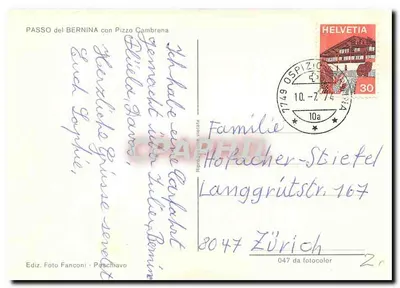 PASSO del BERNINA con Pizzo Cambrena
Ich habe eine Carfahrt
gemacht über Julier, Bernina
Flüela, Davos.
Herzliche Grüsse sendet
Euch Sophie,
HELVETIA
30
7749 OSPIZIO BERNINA
10.-7. 74
10a
Familie
Hofacher-Stiefel
Langgrütstr. 167
8047 Zürich
047 da fotocolor
Ediz. Foto Fanconi - Poschiavo